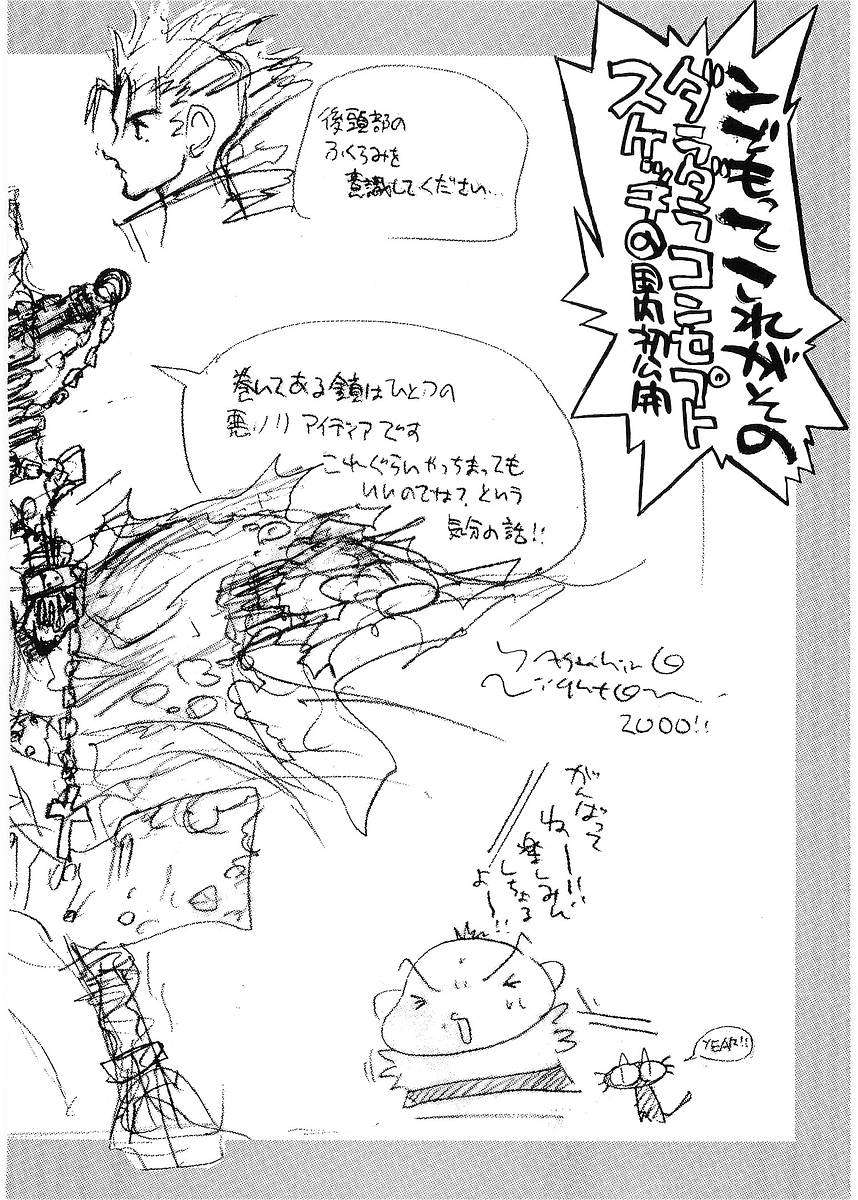 ハイもってこれぞその
ダラダラコンセプト
スケッチの男初公開
後頭部の
ふくらみを
意識してください…
巻いてある鎖はひとつの
悪ノリアイディアです
これぐらいやっちまっても
いいのでは？という
気分の話!!
Yasuhiro
Nightow
2000!!
がんばって
ねー!!
楽しみん
しちょる
よー!!
YEAH!!